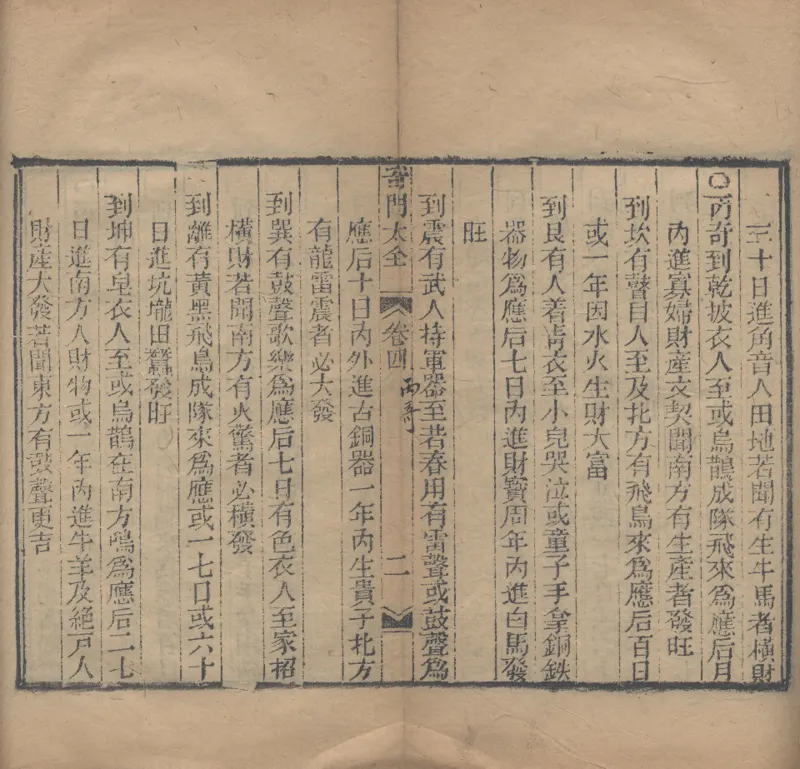 三十日進角音人田地若聞有生牛馬者橫財
○丙奇到乾披衣人至或烏鵲成隊飛來爲應后月
內進寡婦財產文契聞南方有生產者發旺
到坎有瞽目人至及北方有飛鳥來爲應后百日
或一年因水火生財大富
到艮有人着青衣至小兒哭泣或童子手拿銅鉄
器物爲應后七日內進財寶周年內進白馬發
旺
到震有武人持軍器至若春用有雷聲或鼓聲爲
奇門大全 卷四 丙奇 二
應后十日內外進古銅器一年內生貴子北方
有龍雷震者必大發
到巽有鼓聲歌樂爲應后七日有色衣人至家招
橫財若聞南方有火驚者必橫發
到離有黃黑飛鳥成隊來爲應或一七日或六十
日進坑壠田蠶發旺
到坤有皂衣人至或烏鵲在南方鳴爲應后二七
日進南方人財物或一年內進牛羊及絕戸人
財產大發若聞東方有鼓聲更吉